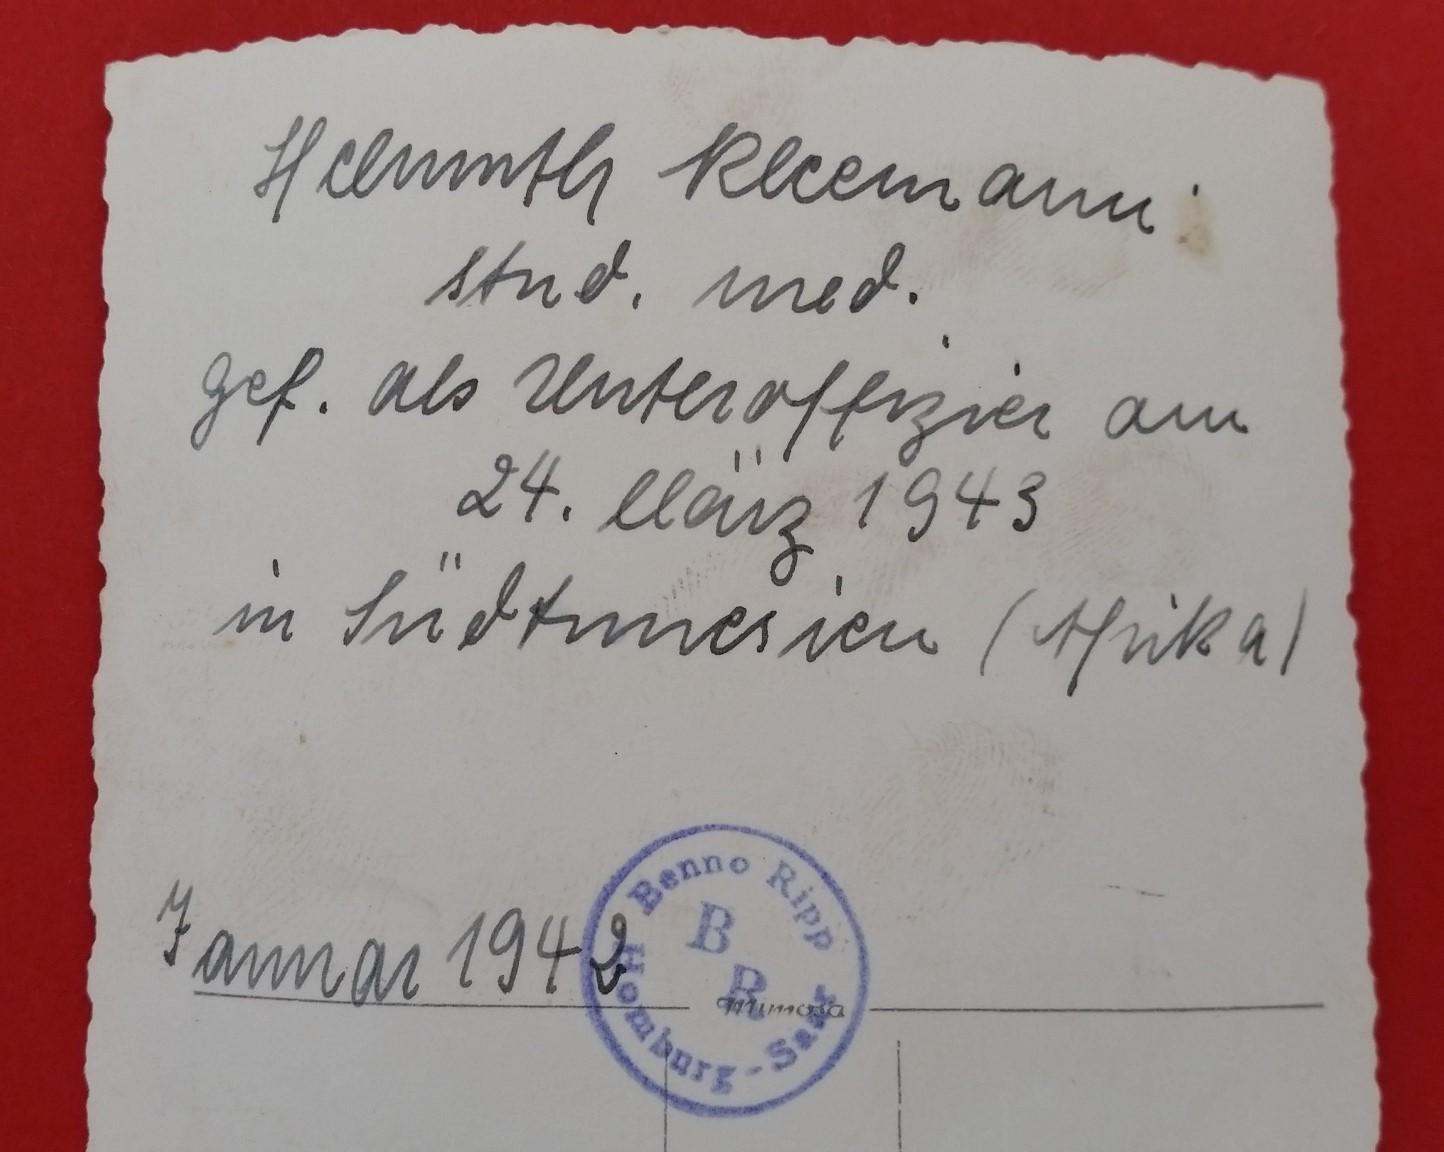 Helmuth Kleemann
stud. med.
gef. als Unteroffizier am
24. März 1943
in Südtunesien (Afrika)
Januar 1942
Benno Ripp
B
R
Homburg-Saar
Mimosa